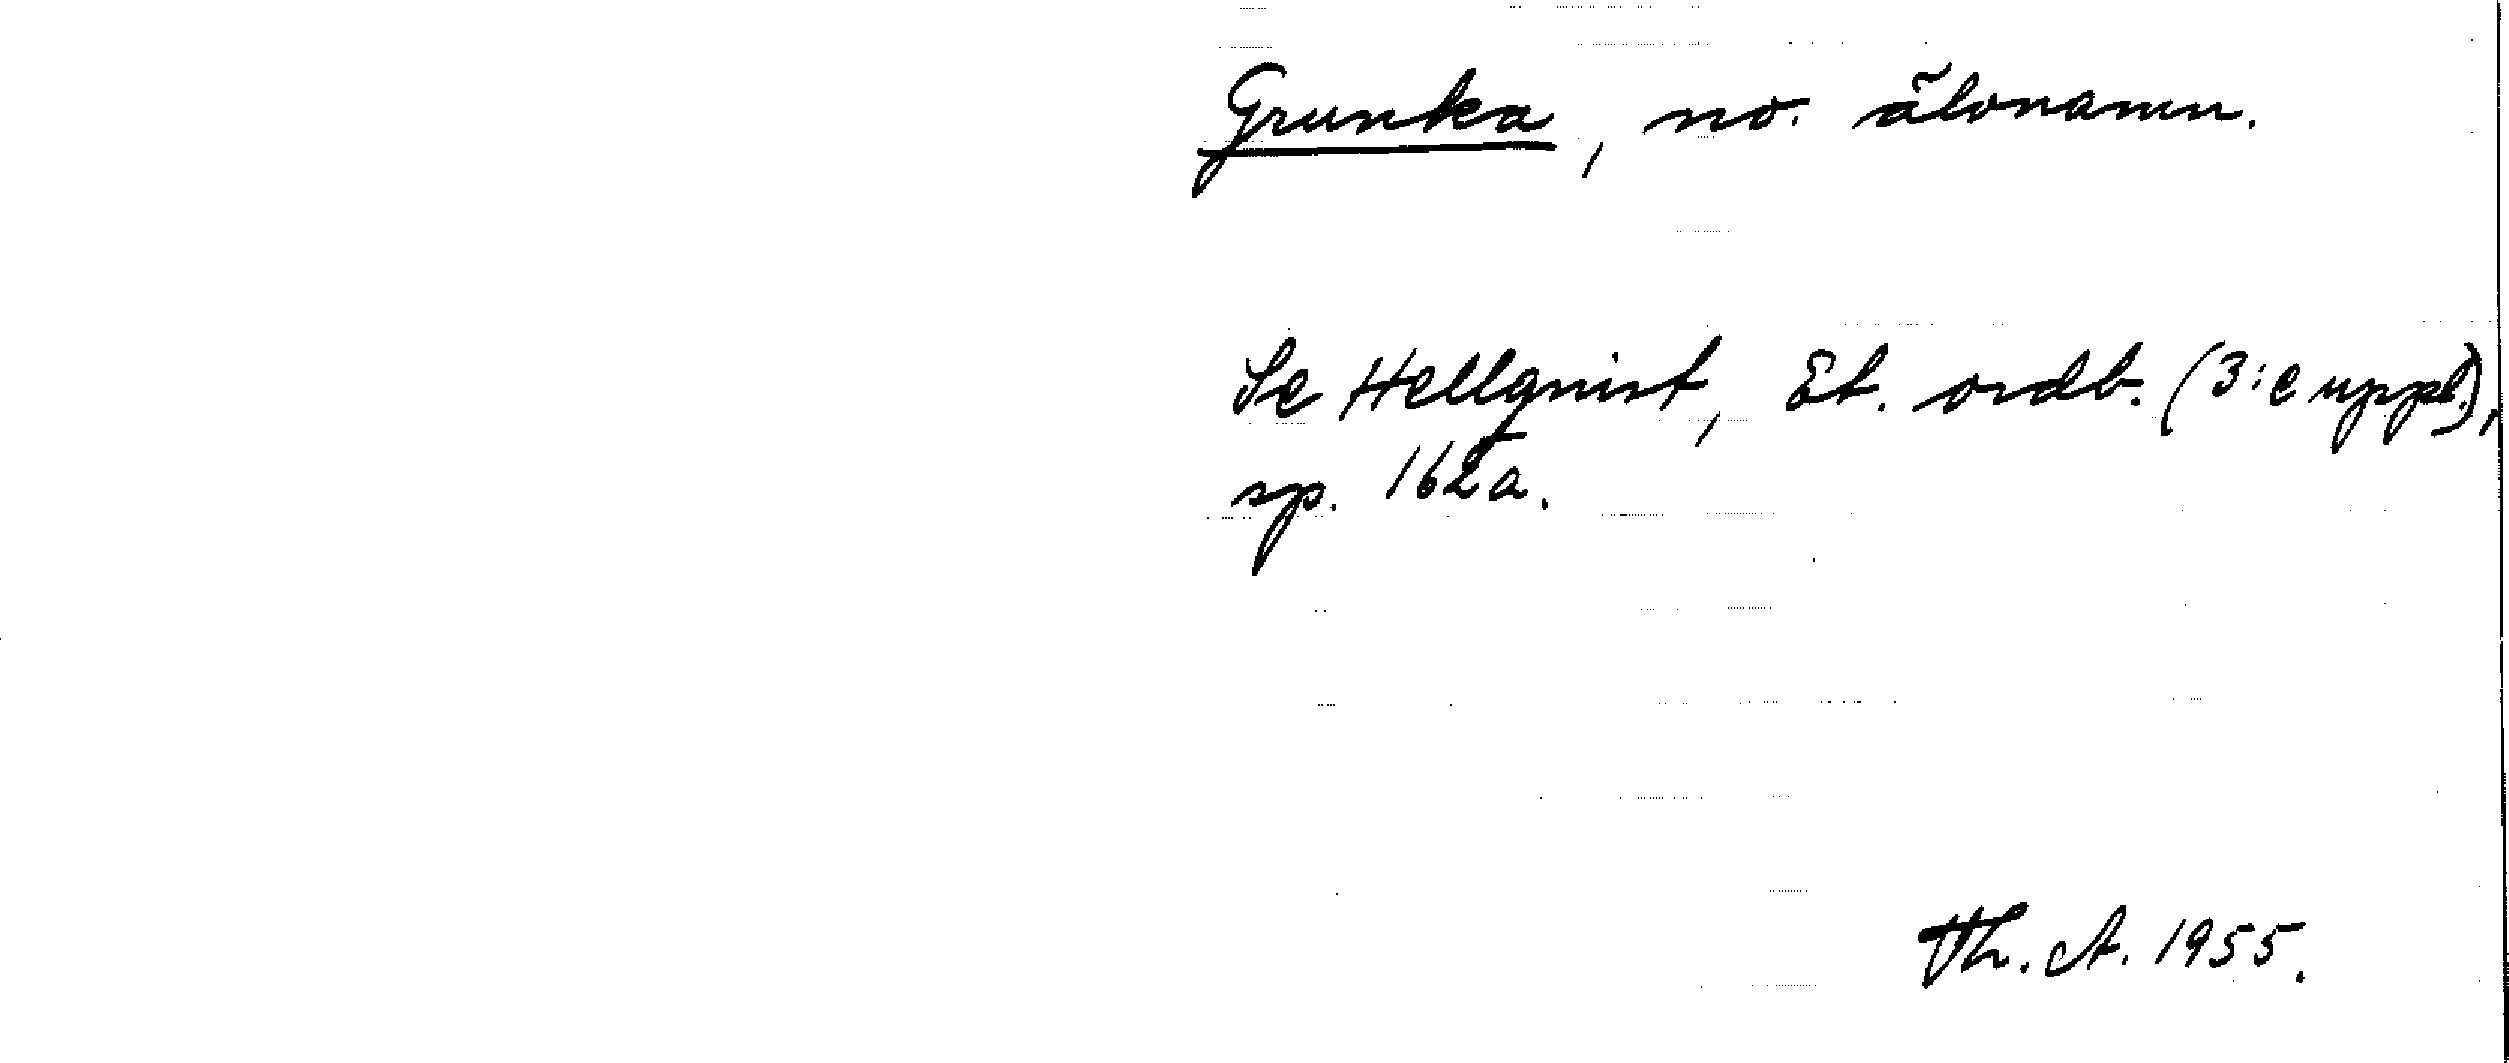 Grunka, no. älvnamn.
Se Hellquist, Et. ordb. (3:e uppl.),
sp. 162a.
Th. A. 1955.